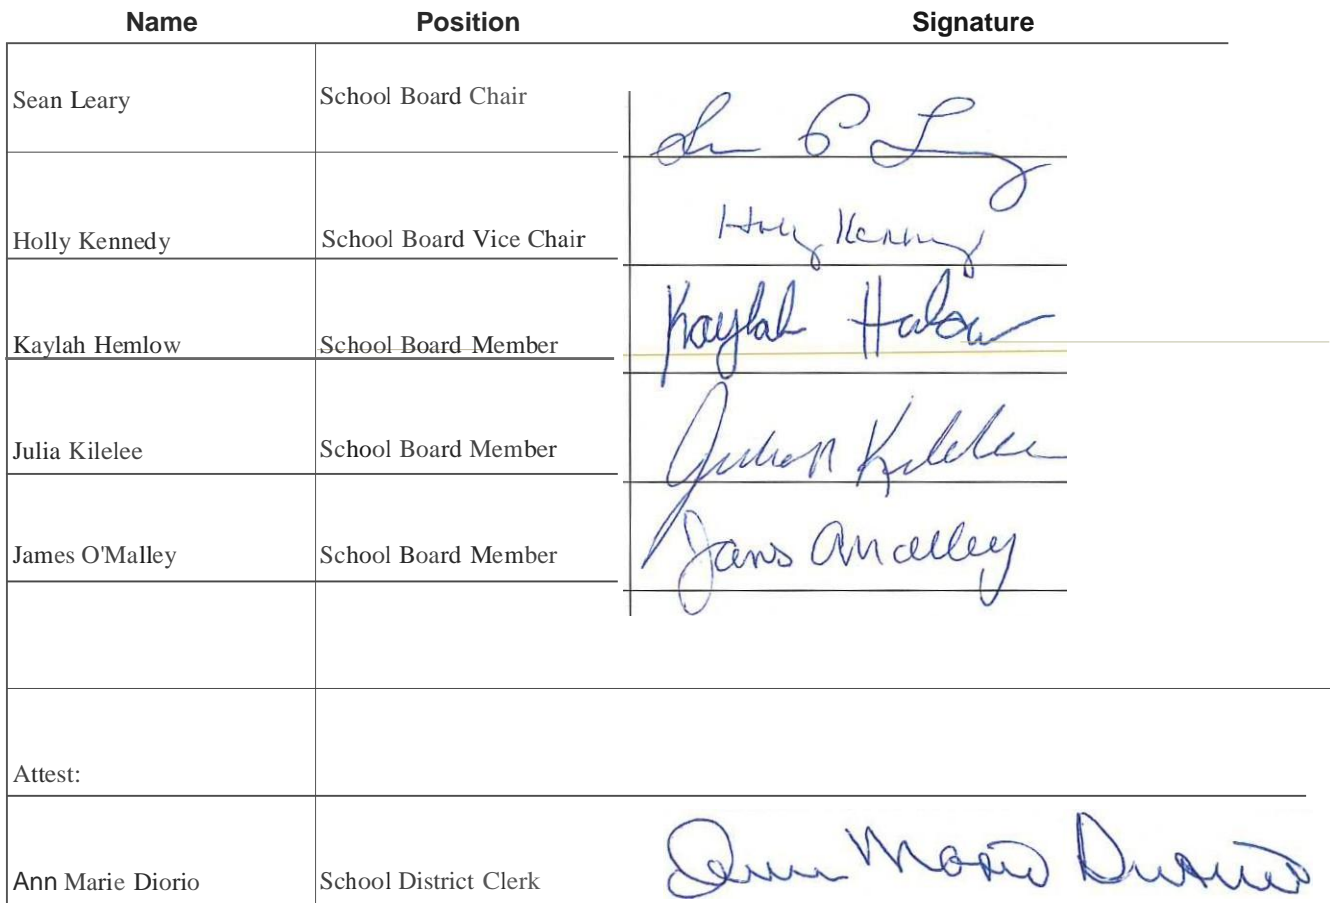 Name Position Signature
Sean Leary School Board Chair
Holly Kennedy School Board Vice Chair Holly Kennedy
Kaylah Hemlow School Board Member Kaylah
Julia Kilelee School Board Member Kilelee
James O'Malley School Board Member
Attest:
Ann Marie Diorio School District Clerk Ann Marie Diorio